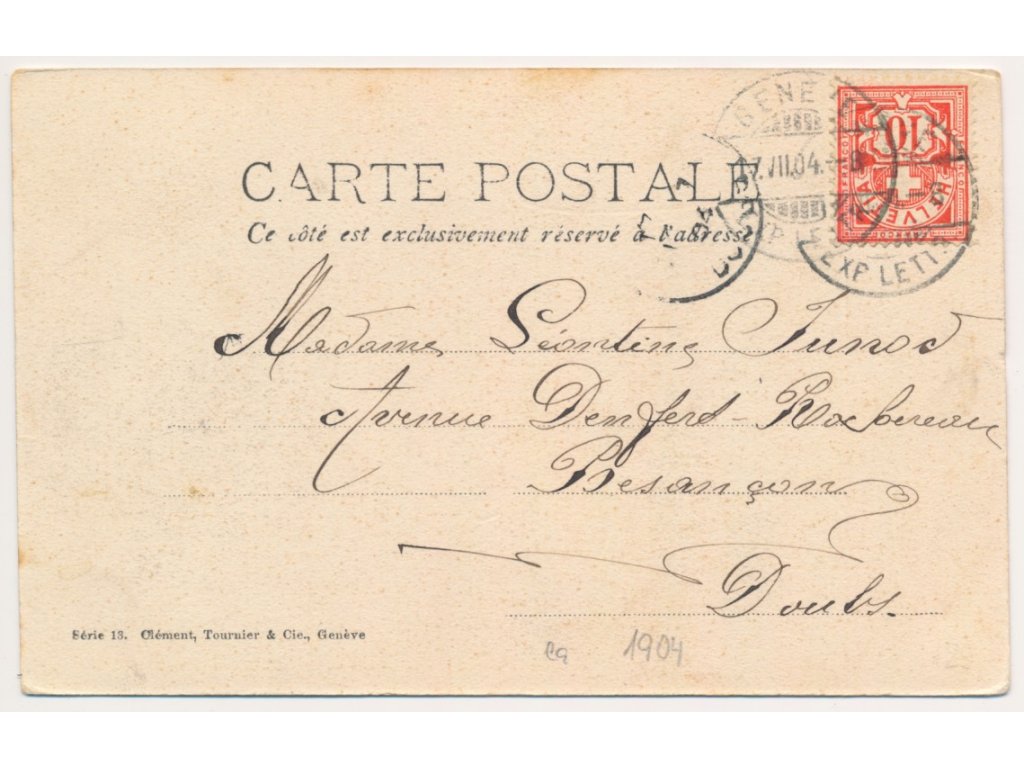 GENÈVE
7.VII.04.-8
EXP. LETT.
10
HELVETIA
CARTE POSTALE
Ce côté est exclusivement réservé à l'adresse
Madame Léontine Junod
Avenue Denfert-Rochereau
Besançon
Doubs.
Série 13. Clément, Tournier & Cie., Genève
1904